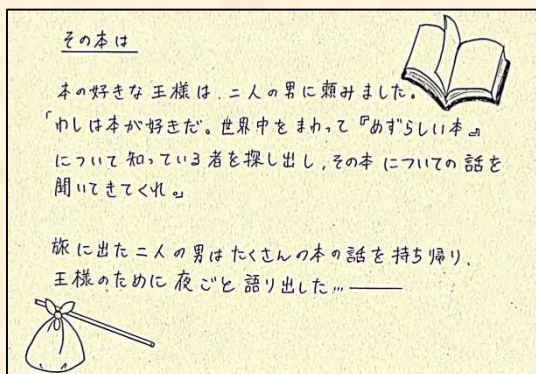 その本は
本の好きな王様は、二人の男に頼みました。
「わしは本が好きだ。世界中をまわって『めずらしい本』
について知っている者を探し出し、その本についての話を
聞いてきてくれ。」
旅に出た二人の男はたくさんの本の話を持ち帰り、
王様のために夜ごと語り出した…――